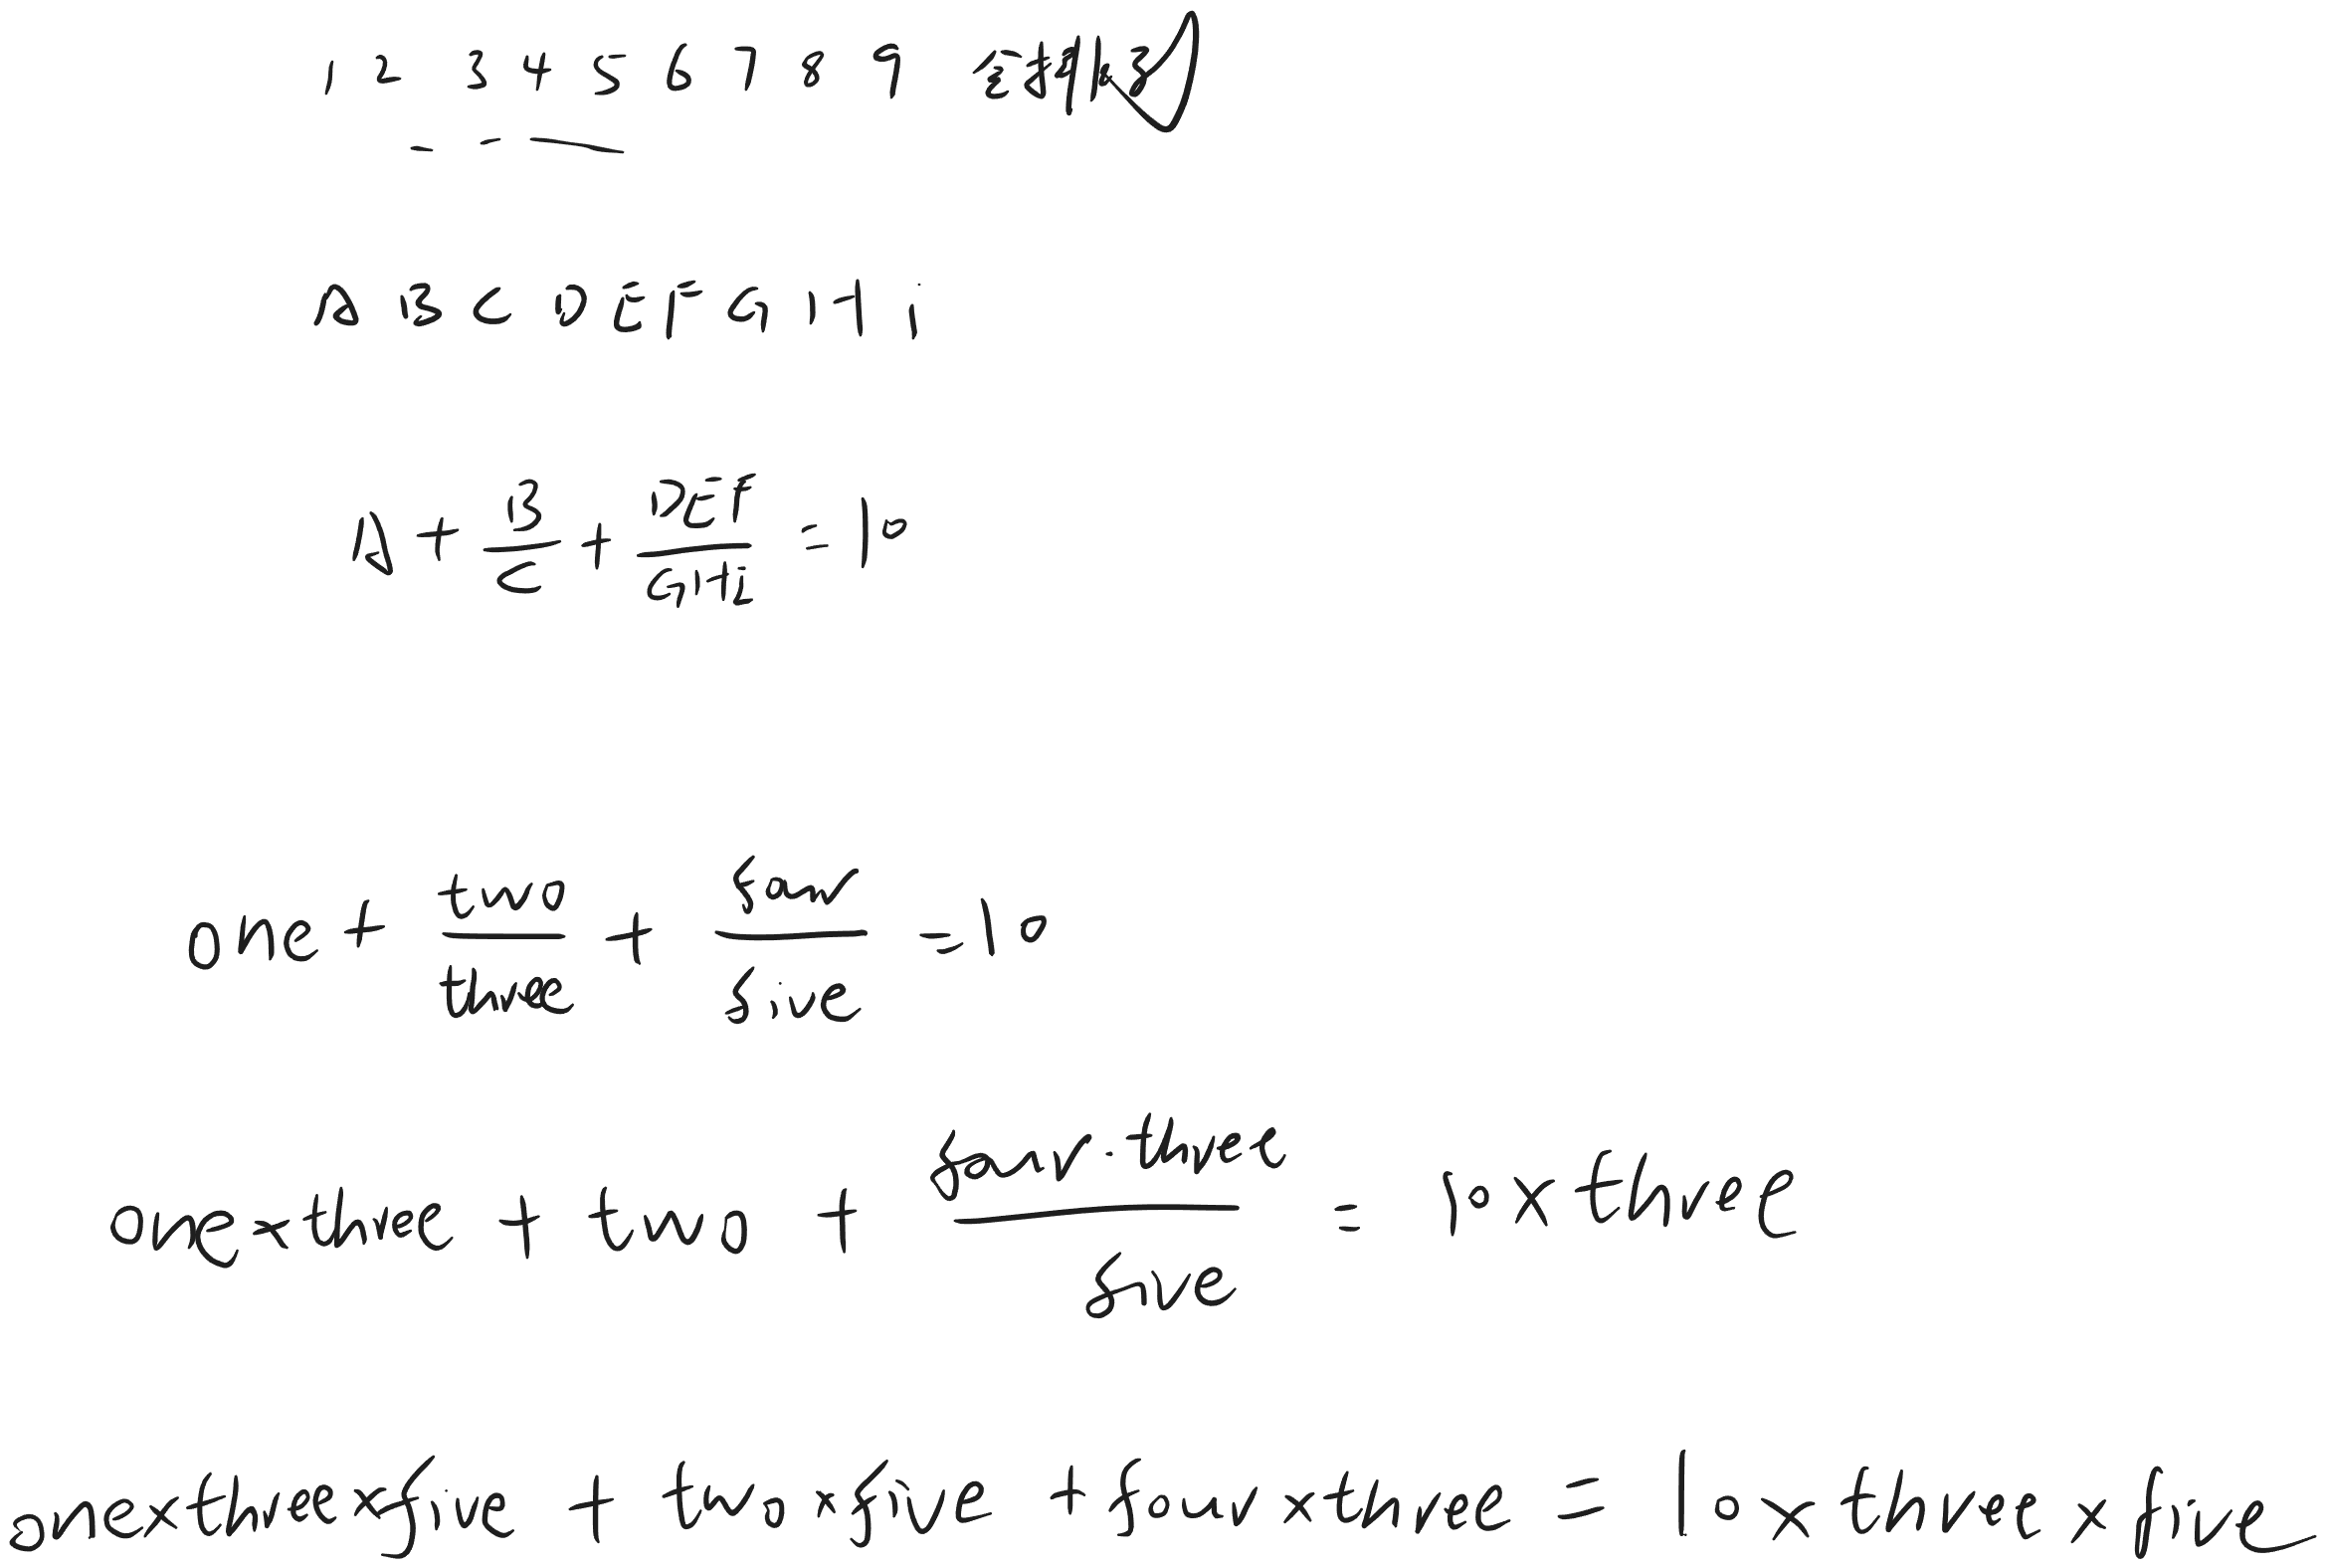 1 2 3 4 5 6 7 8 9 全排列
A B C D E F G H i
A + B/C + DEF/GHi = 10
one + two/three + four/five = 10
one × three + two + four · three/five = 10 × three
one × three × five + two × five + four × three = 10 × three × five